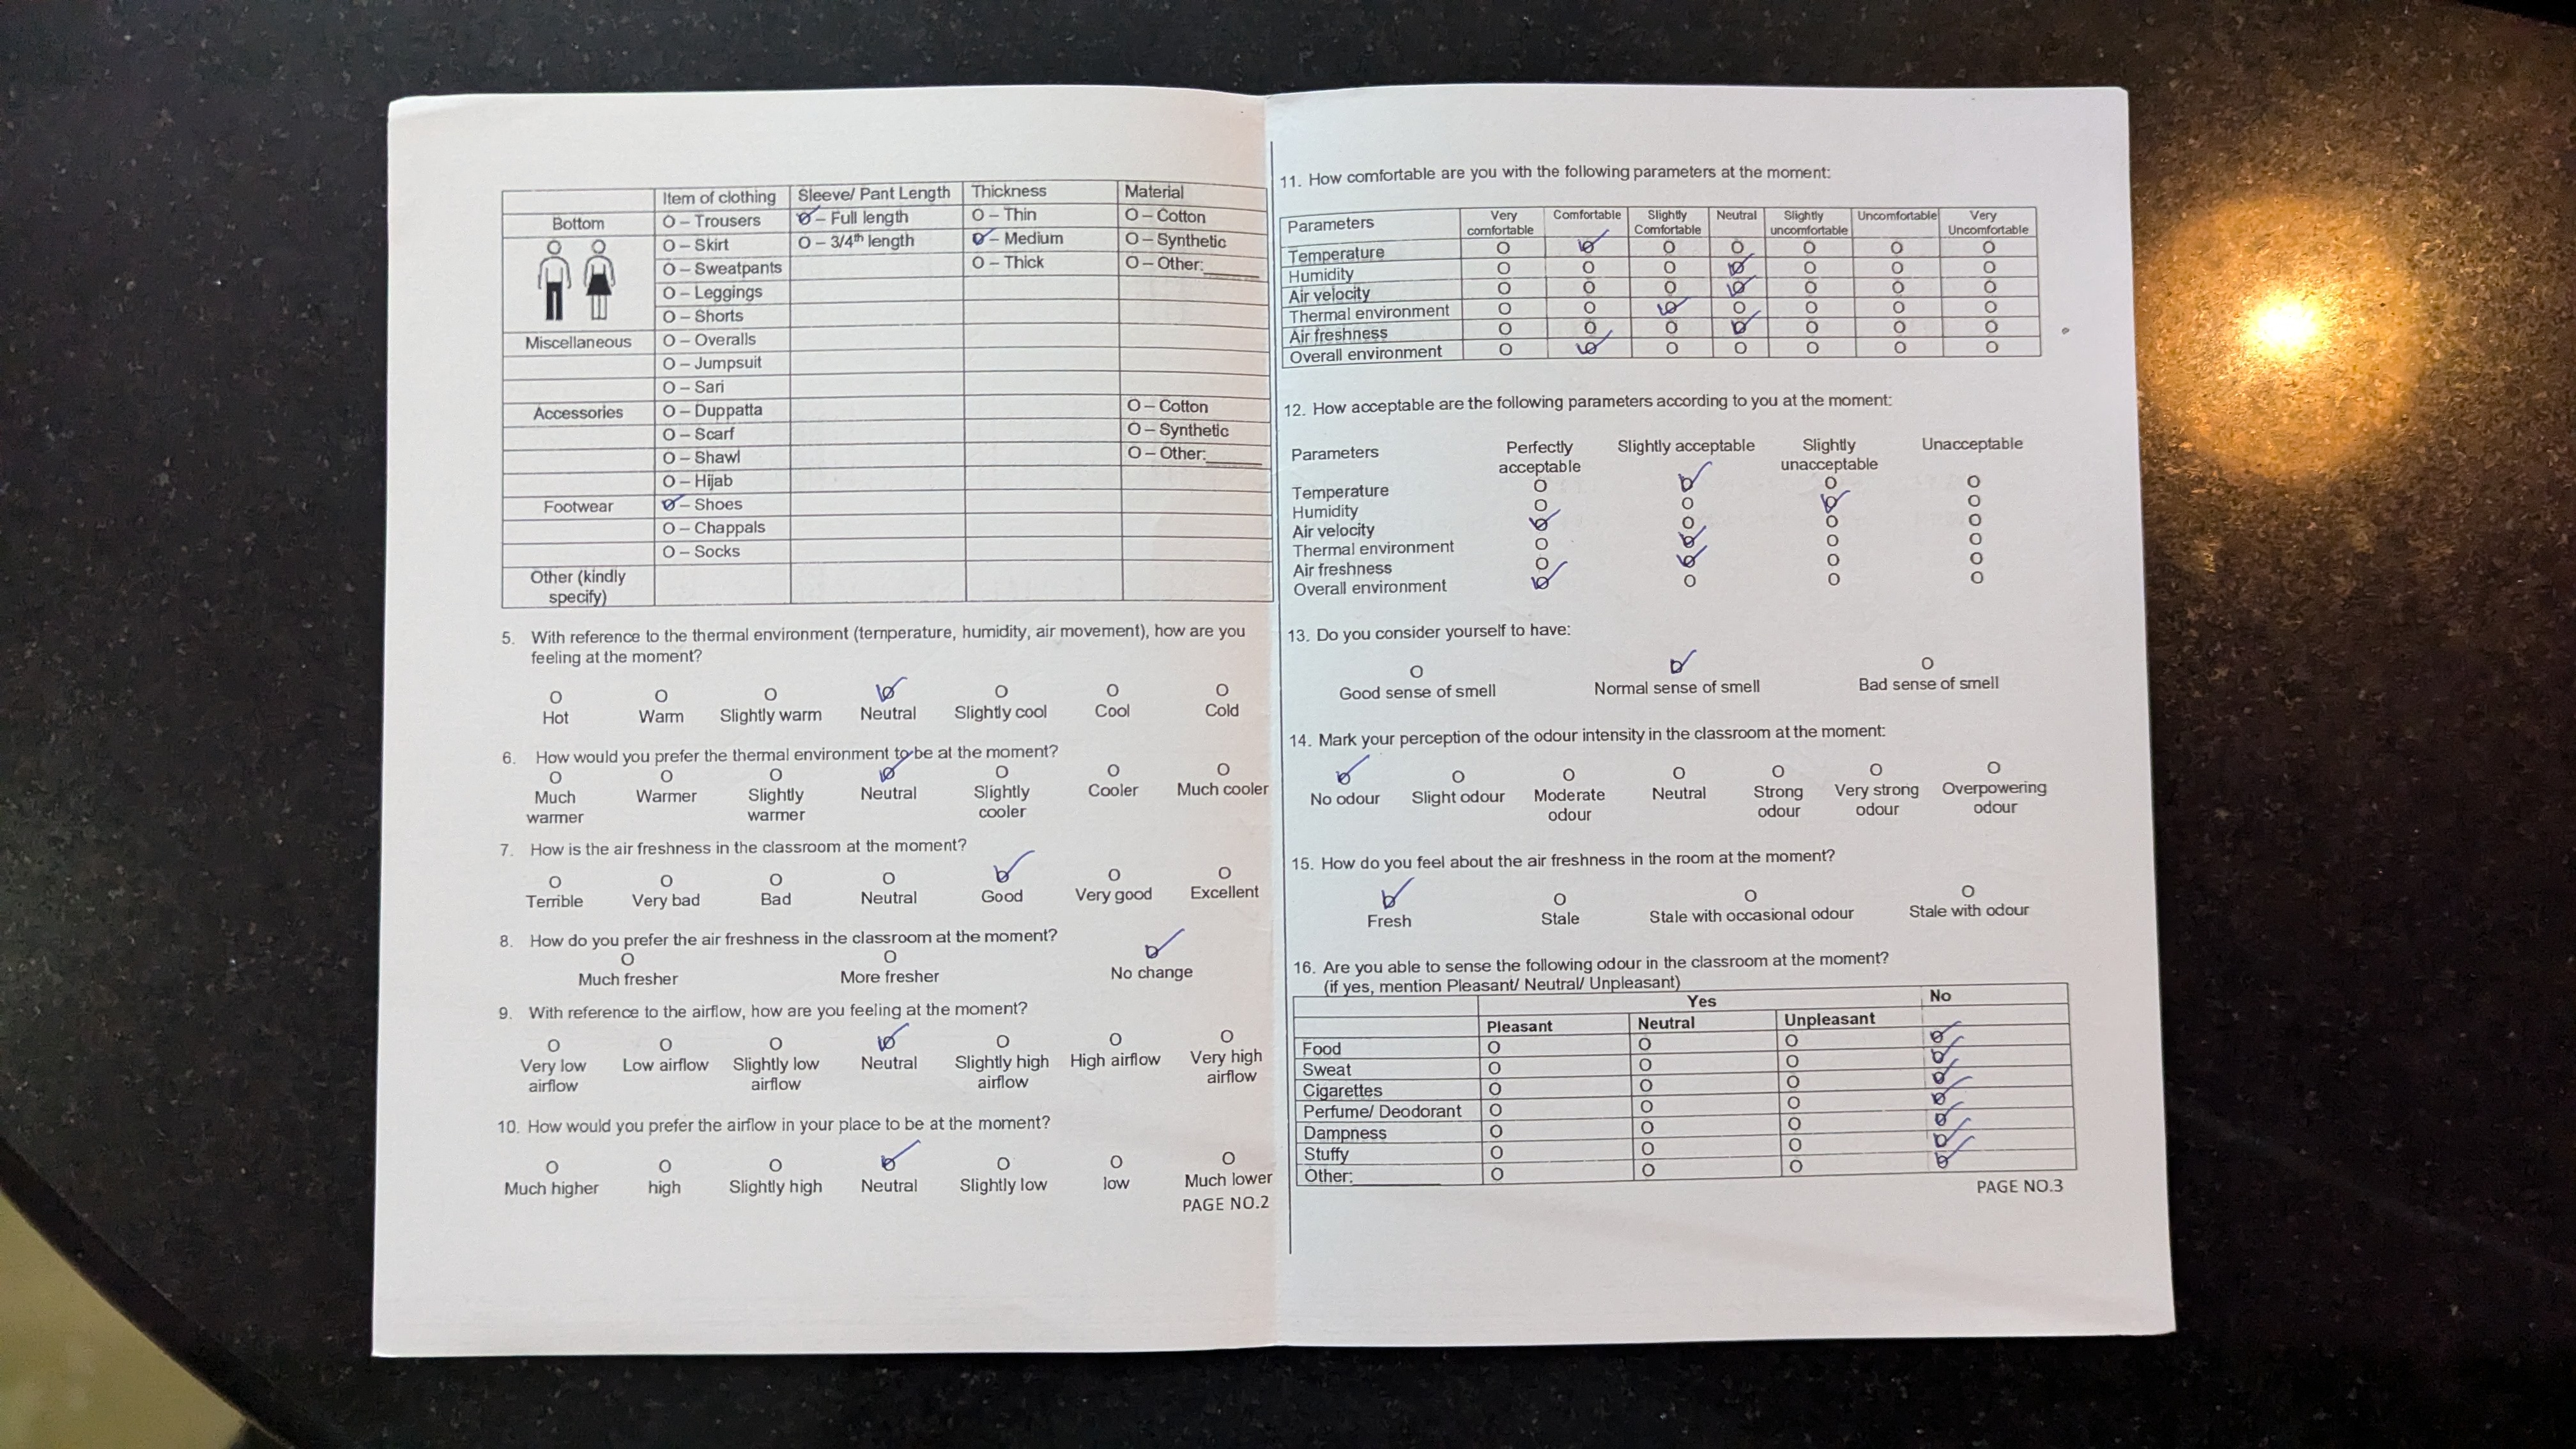 Item of clothing Sleeve/ Pant Length Thickness Material
Bottom O – Trousers O – Full length O – Thin O – Cotton
O – Skirt O – 3/4th length O – Medium O – Synthetic
O – Sweatpants O – Thick O – Other:______
O – Leggings
O – Shorts
Miscellaneous O – Overalls
O – Jumpsuit
O – Sari
Accessories O – Duppatta O – Cotton
O – Scarf O – Synthetic
O – Shawl O – Other:______
O – Hijab
Footwear O – Shoes
O – Chappals
O – Socks
Other (kindly
specify)
5. With reference to the thermal environment (temperature, humidity, air movement), how are you
feeling at the moment?
O O O O O O O
Hot Warm Slightly warm Neutral Slightly cool Cool Cold
6. How would you prefer the thermal environment to be at the moment?
O O O O O O O
Much Warmer Slightly Neutral Slightly Cooler Much cooler
warmer warmer cooler
7. How is the air freshness in the classroom at the moment?
O O O O O O O
Terrible Very bad Bad Neutral Good Very good Excellent
8. How do you prefer the air freshness in the classroom at the moment?
O O O
Much fresher More fresher No change
9. With reference to the airflow, how are you feeling at the moment?
O O O O O O O
Very low Low airflow Slightly low Neutral Slightly high High airflow Very high
airflow airflow airflow airflow
10. How would you prefer the airflow in your place to be at the moment?
O O O O O O O
Much higher high Slightly high Neutral Slightly low low Much lower
PAGE NO.2
11. How comfortable are you with the following parameters at the moment:
Parameters Very Comfortable Slightly Neutral Slightly Uncomfortable Very
comfortable Comfortable uncomfortable Uncomfortable
Temperature O O O O O O O
Humidity O O O O O O O
Air velocity O O O O O O O
Thermal environment O O O O O O O
Air freshness O O O O O O O
Overall environment O O O O O O O
12. How acceptable are the following parameters according to you at the moment:
Parameters Perfectly Slightly acceptable Slightly Unacceptable
acceptable unacceptable
Temperature O O O O
Humidity O O O O
Air velocity O O O O
Thermal environment O O O O
Air freshness O O O O
Overall environment O O O O
13. Do you consider yourself to have:
O O O
Good sense of smell Normal sense of smell Bad sense of smell
14. Mark your perception of the odour intensity in the classroom at the moment:
O O O O O O O
No odour Slight odour Moderate Neutral Strong Very strong Overpowering
odour odour odour odour
15. How do you feel about the air freshness in the room at the moment?
O O O O
Fresh Stale Stale with occasional odour Stale with odour
16. Are you able to sense the following odour in the classroom at the moment?
(if yes, mention Pleasant/ Neutral/ Unpleasant)
Yes No
Pleasant Neutral Unpleasant
Food O O O O
Sweat O O O O
Cigarettes O O O O
Perfume/ Deodorant O O O O
Dampness O O O O
Stuffy O O O O
Other:__________ O O O O
PAGE NO.3